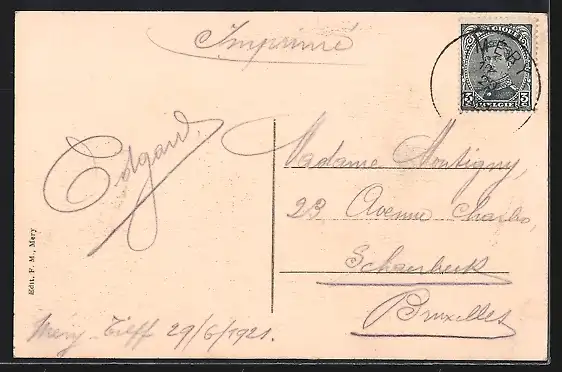 Imprimé
BELGIQUE
MERY
3 3
BELGIE
Edgard.
Madame Montigny,
23 Avenue Charbo,
Schaerbeek
Bruxelles
Edit. F. M., Mery
Mery-Tilff 29/6/1921.